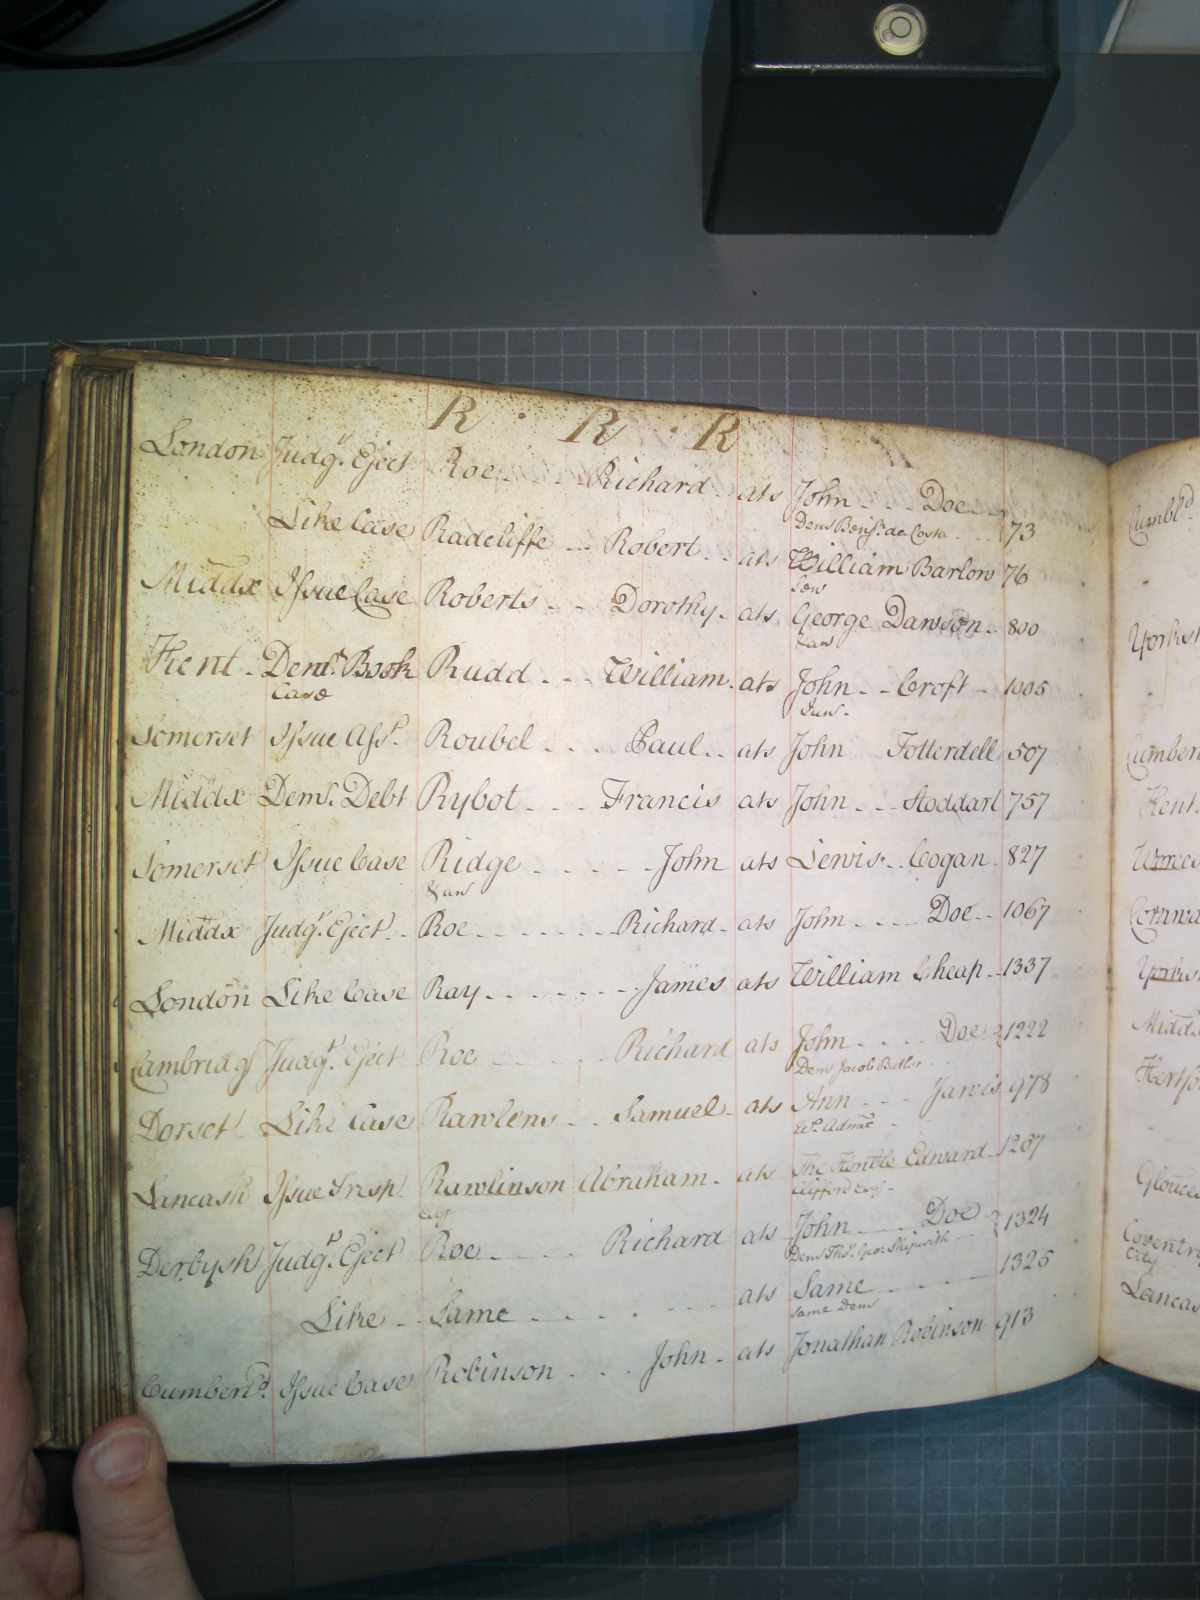 R · R · R
London Judgt. Eject Roe Richard ats John Doe 73
Dem Benjn. da Costa
Like Case Radcliffe Robert ats William Barlow 76
Sen
Middx Issue Case Roberts Dorothy ats George Dawson 800
Kent Demr. Book Rudd William ats John Croft 1005
Case Jun.
Somerset Issue Asst. Roubel Paul ats John Totterdell 507
Middx Demr. Debt Rybot Francis ats John Stoddart 757
Somerset Issue Case Ridge John ats Lewis Cogan 827
Middx Judgt. Eject Roe Richard ats John Doe 1067
London Like Case Ray James ats William Cheap 1337
Cambridg Judgt. Eject Roe Richard ats John Doe 1222
Dem Jacob Butler
Dorset Like Case Rawlens Samuel ats Ann Jarvis 978
Lancash Issue Tresp Rawlinson Abraham ats The Honble Edward 1267
Esq Clifford Esqr.
Derbysh Judgt. Eject Roe Richard ats John Doe 1324
Dem Thos. Geo: Skipwith
Like Same ats Same 1325
Same Dem
Cumberld. Issue Case Robinson John ats Jonathan Robinson 913
Cumbld
Yorksh
Cumber
Kent.
Worces
Cornwa
Yorks
Midd
Hertfo
Glouces
Coventry
City
Lancas